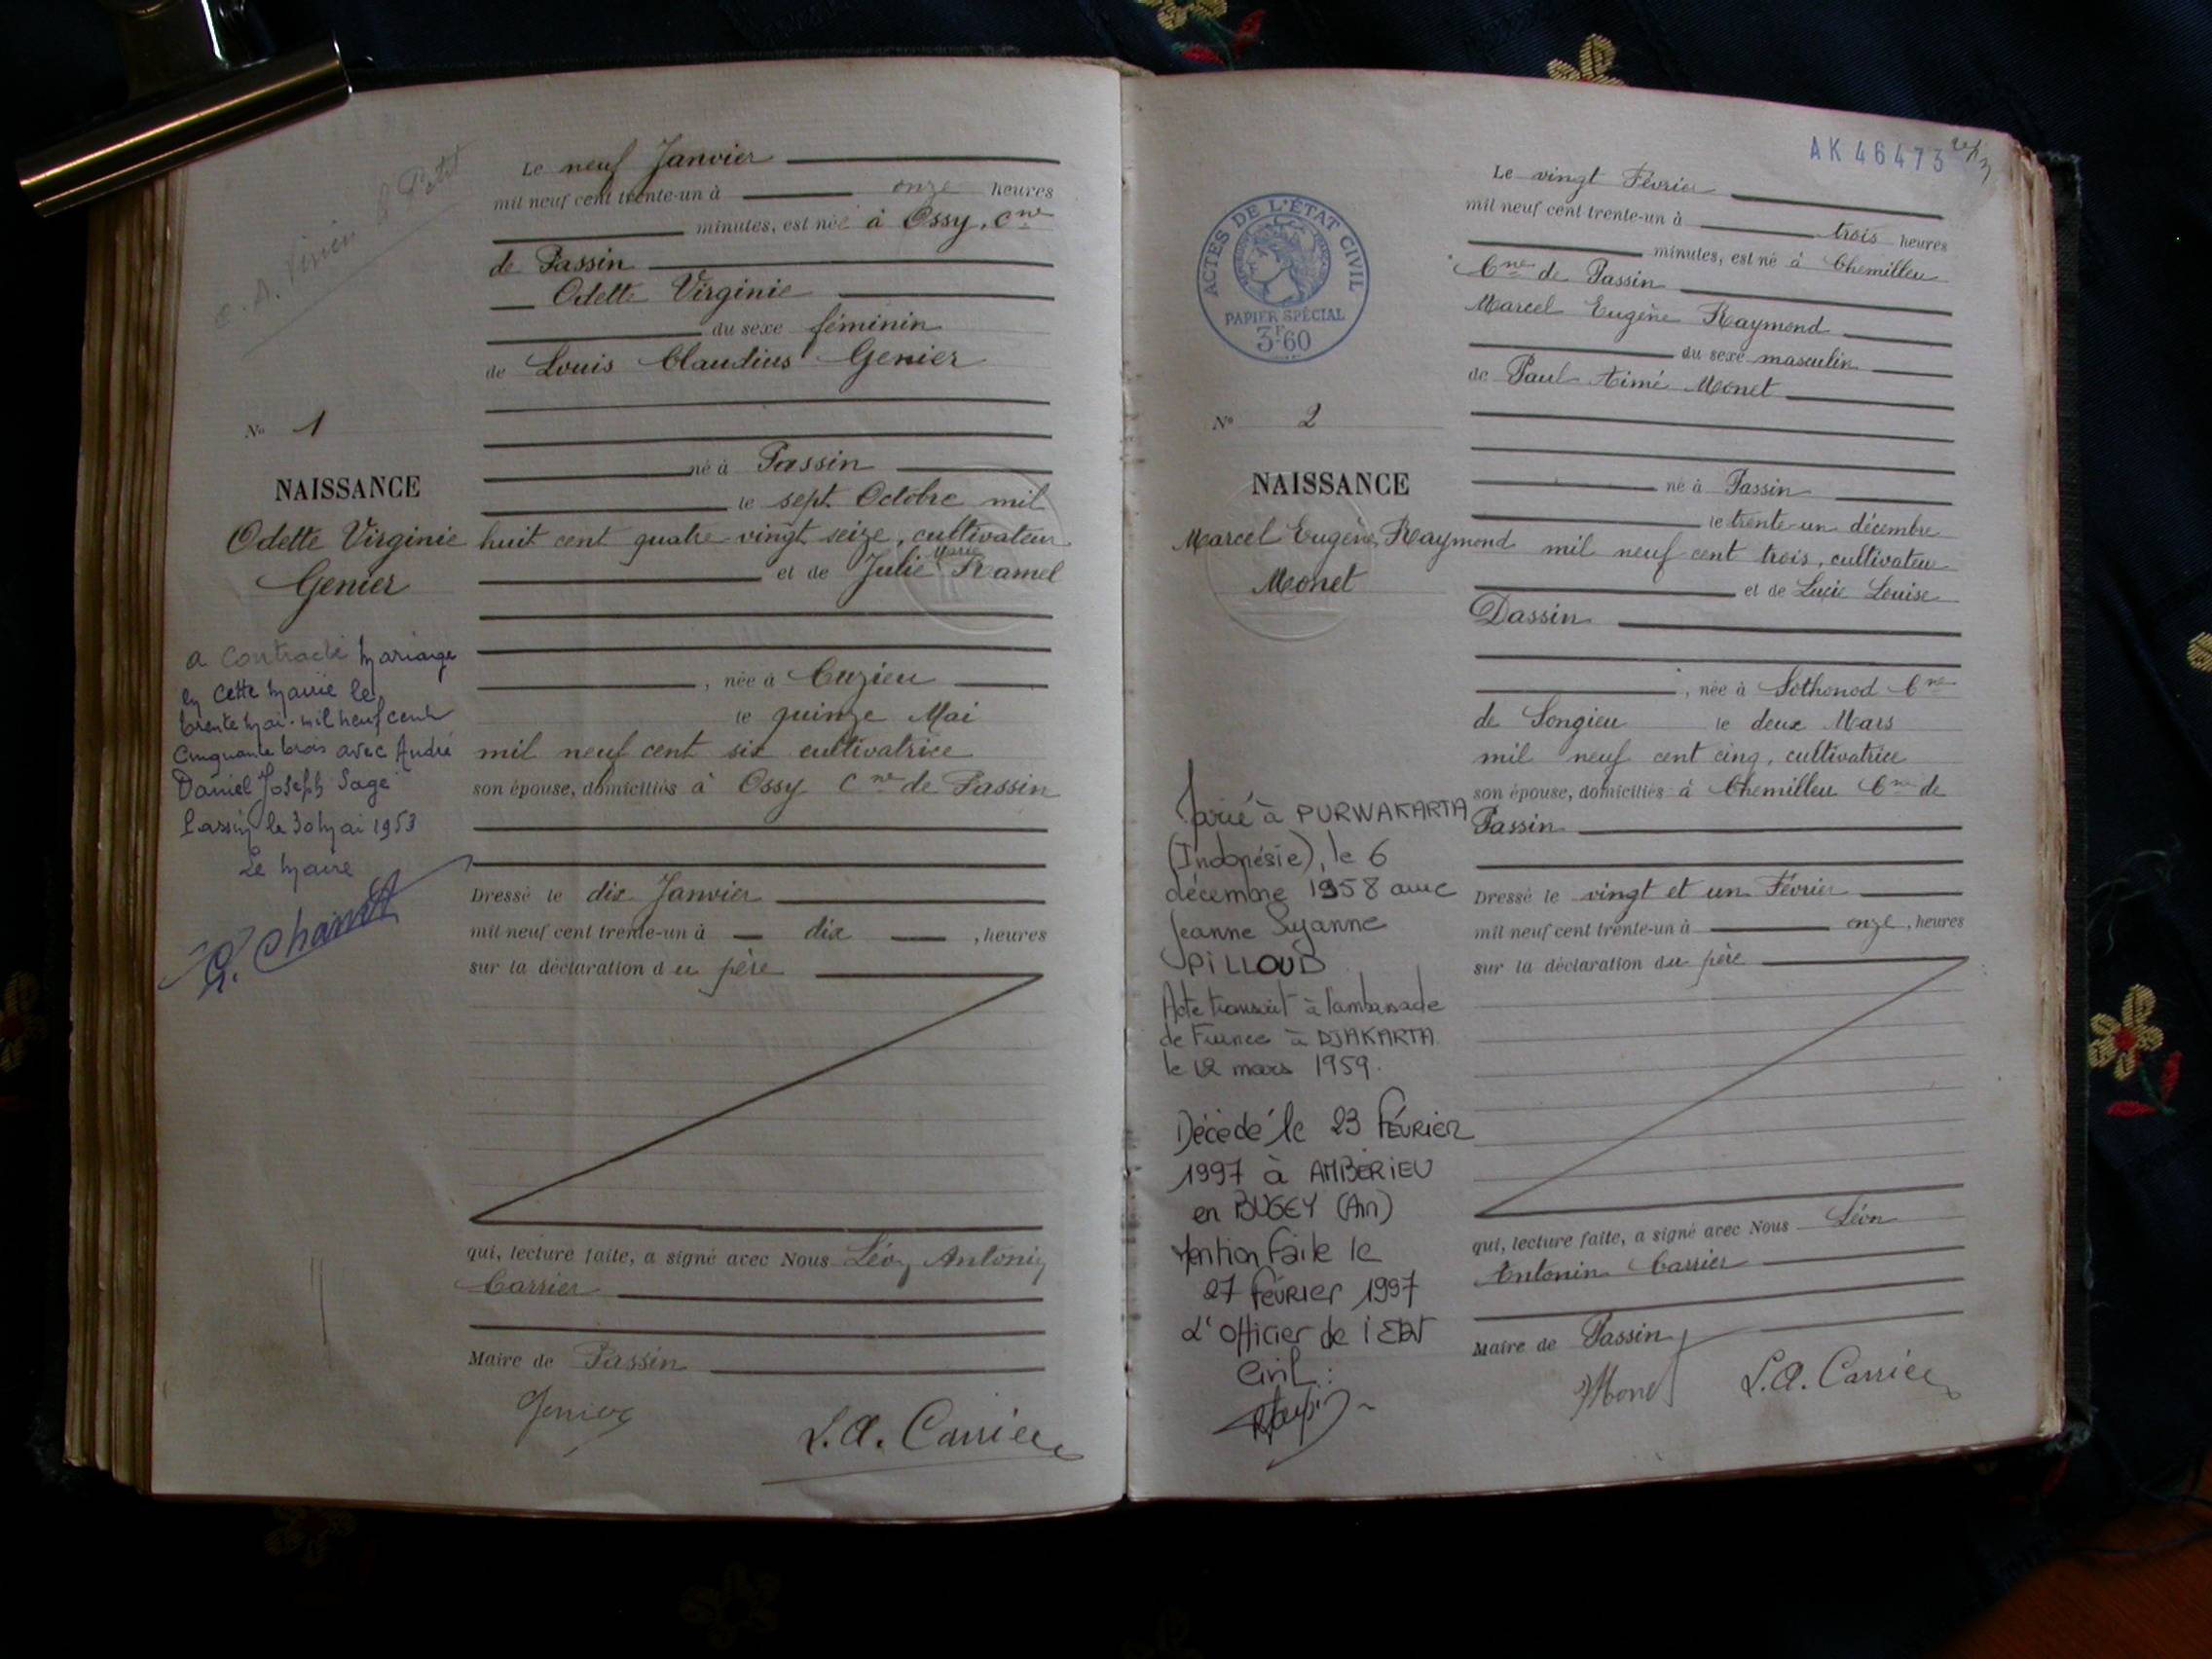 Le neuf Janvier
mil neuf cent trente-un à onze heures
minutes, est née à Ossy, Cne
de Passin
Odette Virginie
du sexe féminin
de Louis Claudius Genier
né à Passin
le sept Octobre mil
huit cent quatre vingt seize, cultivateur
et de Julie Marie Ramel
, née à Cuzieu
le quinze Mai
mil neuf cent six cultivatrice
son épouse, domiciliés à Ossy Cne de Passin
Dressé le dix Janvier
mil neuf cent trente-un à dix , heures
sur la déclaration du père
qui, lecture faite, a signé avec Nous Léon Antonin
Carrier
Maire de Passin
Genier
L. A. Carrier
No 1
NAISSANCE
Odette Virginie
Genier
a contracté mariage
en cette mairie le
trente mai mil neuf cent
cinquante trois avec André
Daniel Joseph Sage
Passin le 30 Mai 1953
Le Maire
AK 46473
ACTES DE L'ÉTAT CIVIL
PAPIER SPÉCIAL
3F60
Le vingt Février
mil neuf cent trente-un à trois heures
minutes, est né à Chemilleu
Cne de Passin
Marcel Eugène Raymond
du sexe masculin
de Paul Aimé Monet
né à Passin
le trente-un décembre
mil neuf cent trois, cultivateur
et de Lucie Louise
Dassin
, née à Sothonod Cne
de Songieu le deux Mars
mil neuf cent cinq, cultivatrice
son épouse, domiciliés à Chemilleu Cne de
Passin
Dressé le vingt et un Février
mil neuf cent trente-un à onze, heures
sur la déclaration du père
qui, lecture faite, a signé avec Nous Léon
Antonin Carrier
Maire de Passin
Monet
L. A. Carrier
No 2
NAISSANCE
Marcel Eugène Raymond
Monet
Marié à PURWAKARTA
(Indonésie), le 6
décembre 1958 avec
Jeanne Suzanne
PILLOUD
Acte transcrit à l'ambassade
de France à DJAKARTA
le 12 mars 1959.
Décédé le 23 FÉVRIER
1997 à AMBÉRIEU
en BUGEY (Ain)
Mention faite le
27 FÉVRIER 1997
L'officier de l'Etat
Civil :